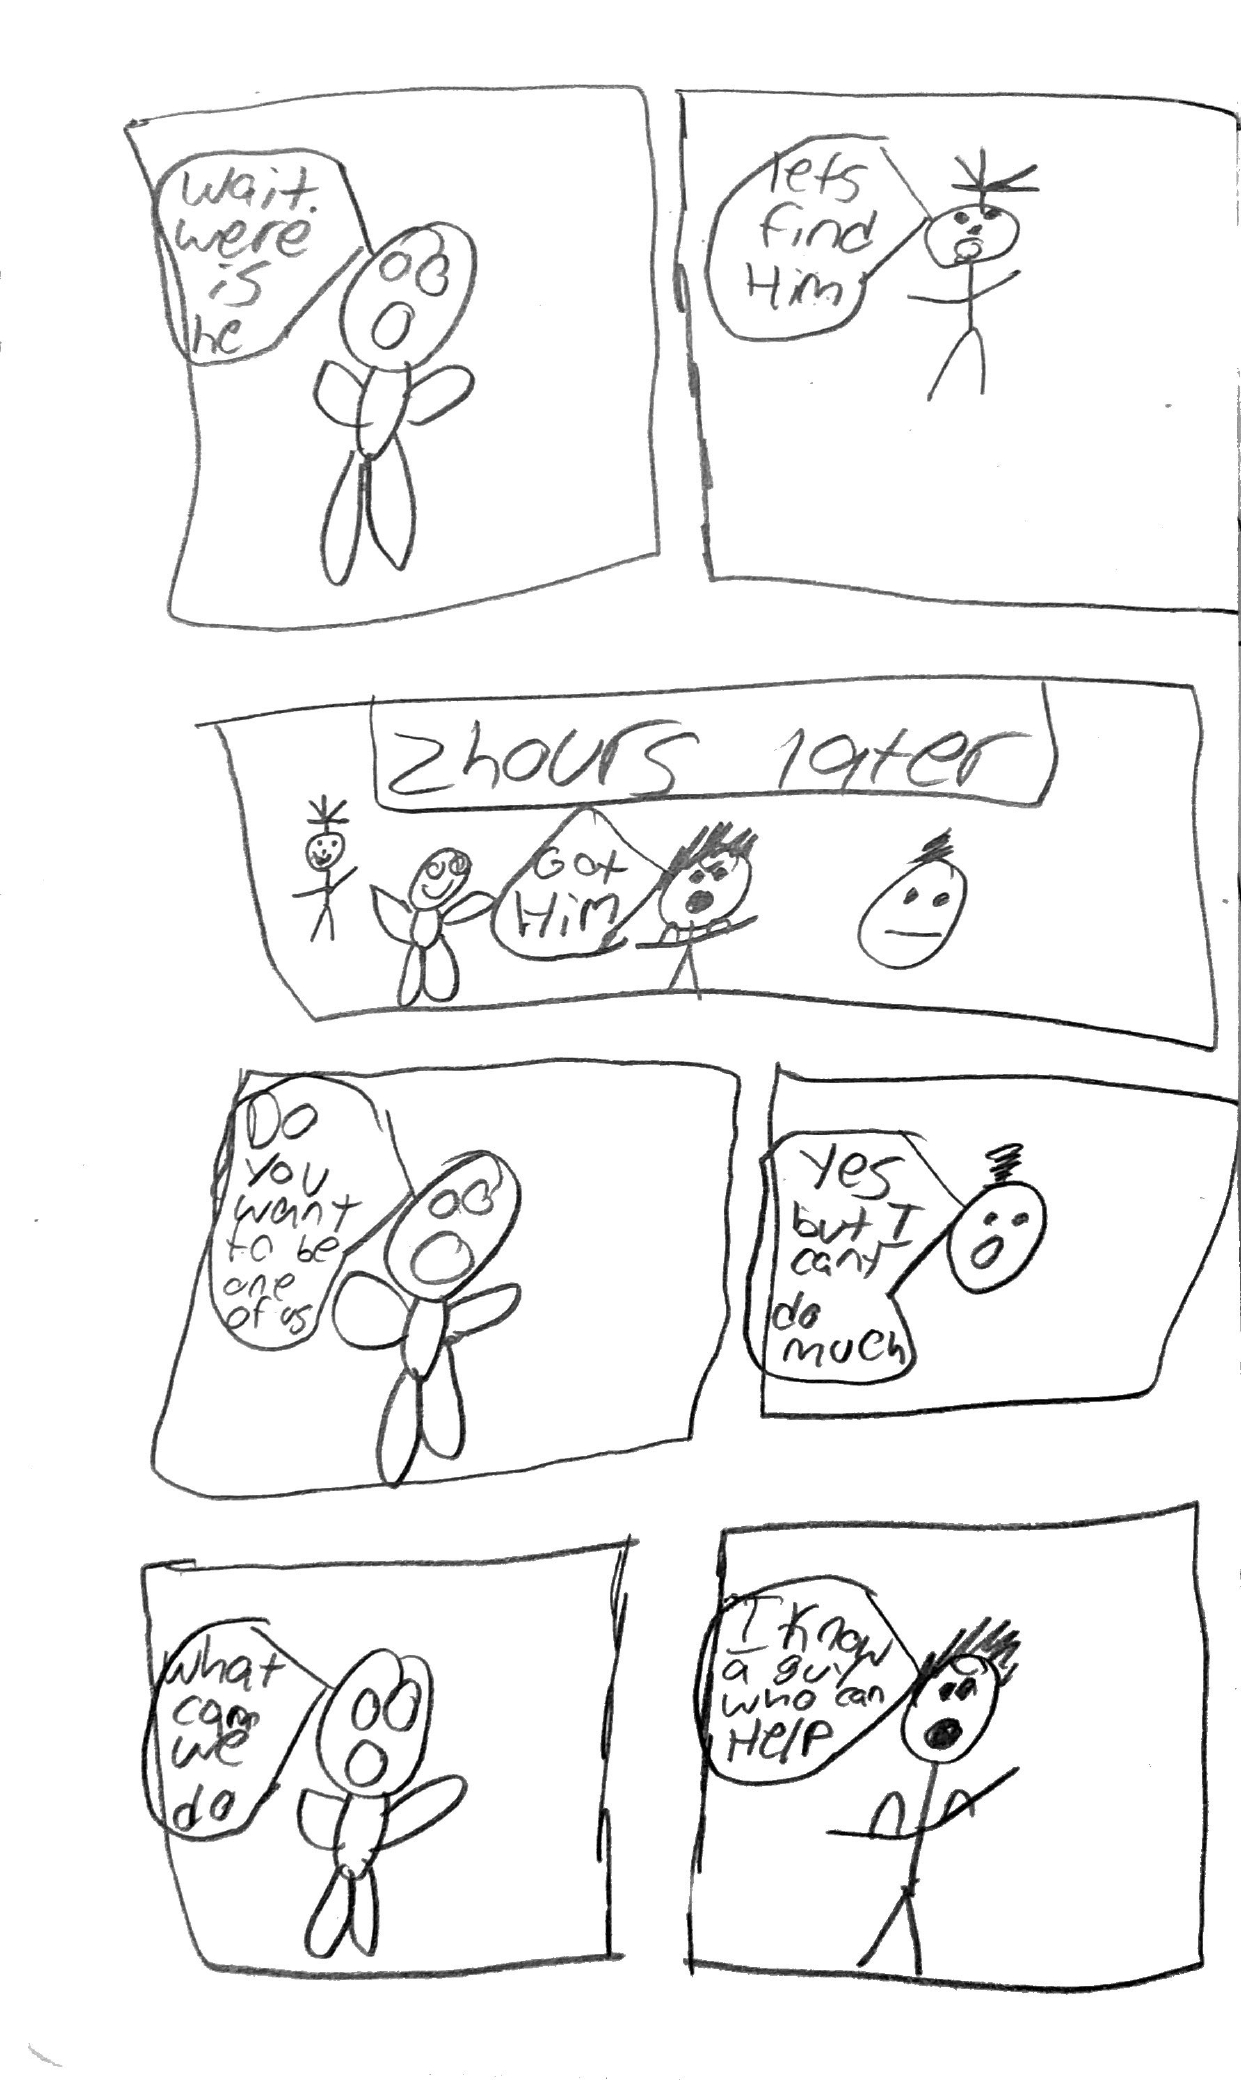 wait.
were
is
he
lets
find
Him
2hours later
Got
Him
Do
you
want
to be
one
of us
Yes
but I
cant
do
much
what
can
we
do
I know
a guy
who can
Help